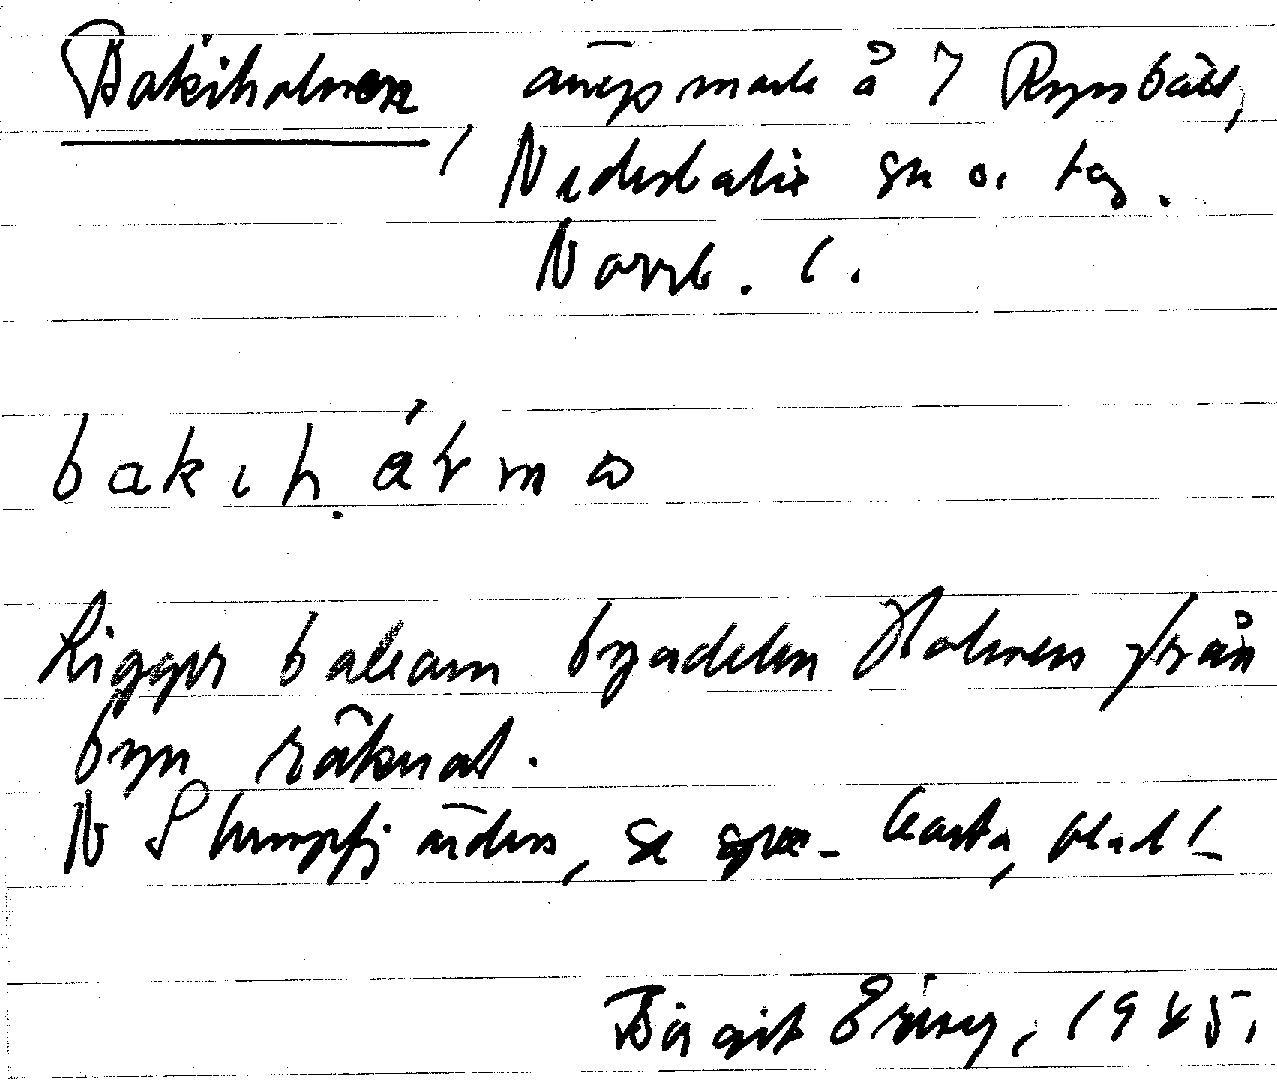 Bakiholmen, ängsmark å 7 Rysbält,
Nederkalix sn o. tg.
Norrb. l.
bakiholma
Ligger bakom byadelen Holmen från
byn räknat.
N Stumpfjärden, se spec. karta, blad 1
Birgit Ering, 1945.